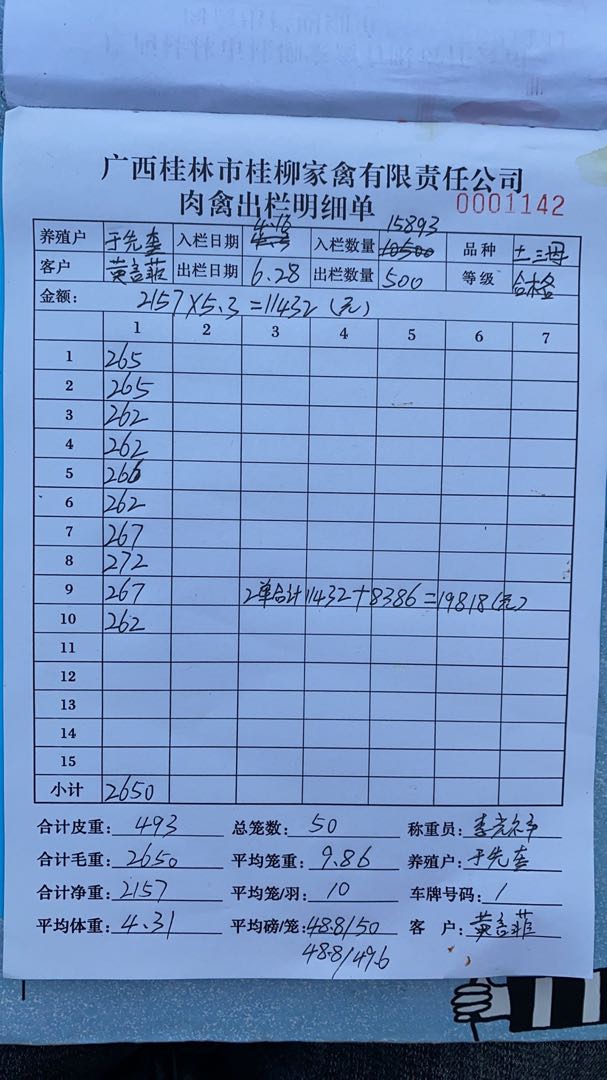 广西桂林市桂柳家禽有限责任公司
肉禽出栏明细单 0001142
养殖户 于先奎 入栏日期 4.18 入栏数量 15893 10500 品种 土三母
客户 黄言菲 出栏日期 6.28 出栏数量 500 等级 合格
金额: 2157×5.3=11432(元)
1 2 3 4 5 6 7
1 265
2 265
3 262
4 262
5 266
6 262
7 267
8 272
9 267 2单合计11432+8386=19818(元)
10 262
11
12
13
14
15
小计 2650
合计皮重: 493 总笼数: 50 称重员:
合计毛重: 2650 平均笼重: 9.86 养殖户: 于先奎
合计净重: 2157 平均笼/羽: 10 车牌号码: /
平均体重: 4.31 平均磅/笼: 48.8/50 客 户: 黄言菲
48.8/49.6